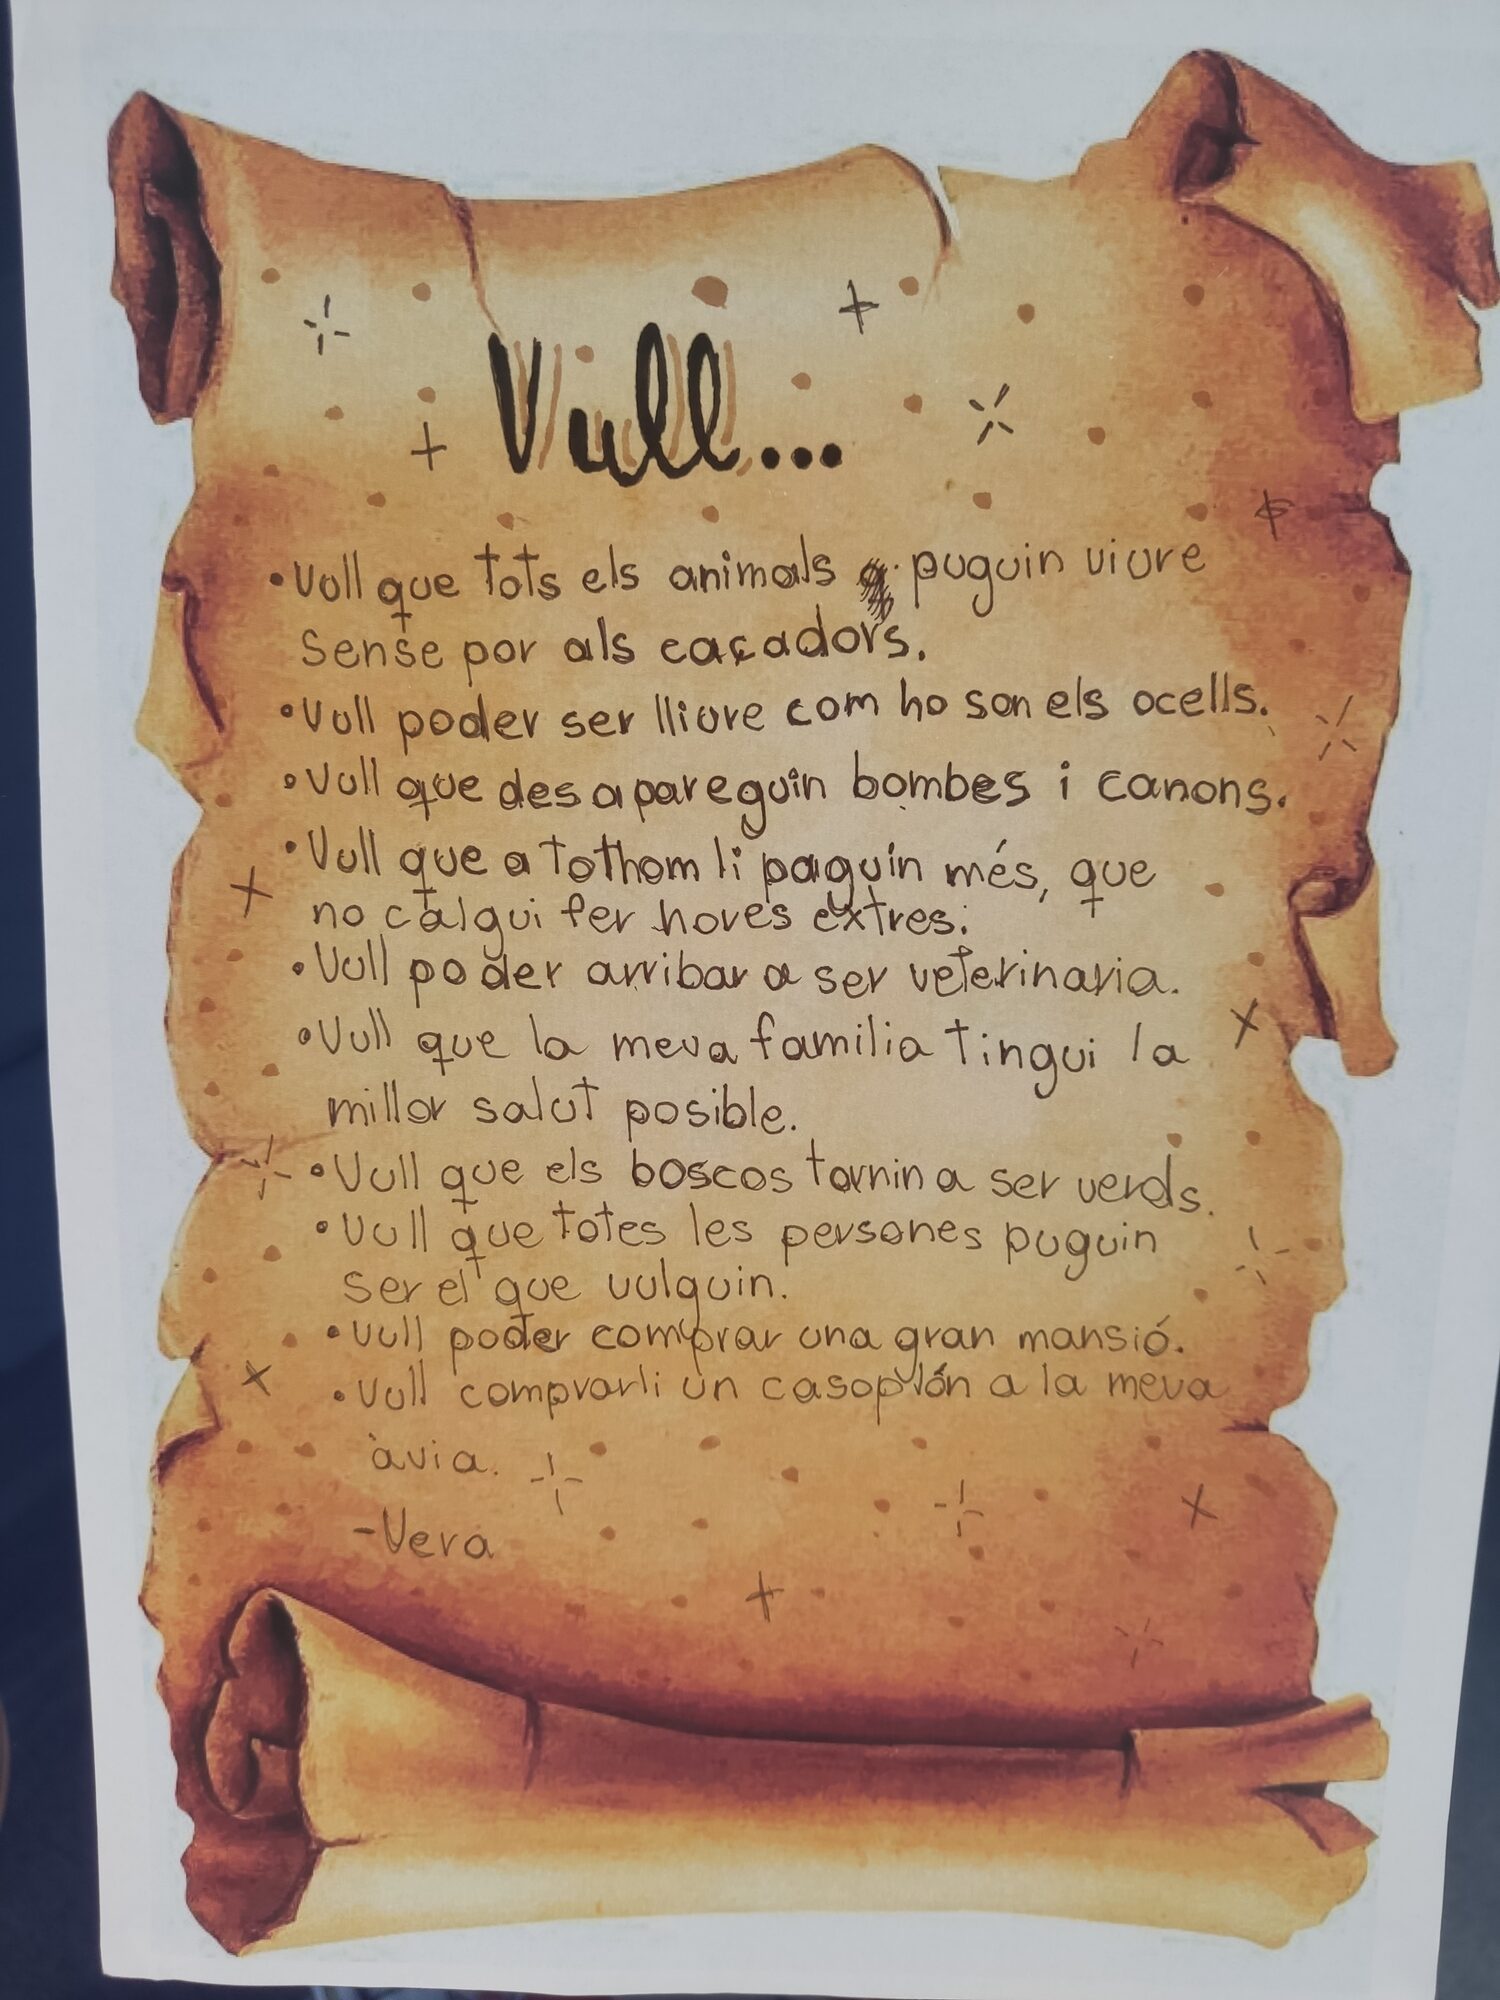 Vull...
•Vull que tots els animals puguin viure
sense por als caçadors.
•Vull poder ser lliure com ho son els ocells.
•Vull que desapareguin bombes i canons.
•Vull que a tothom li paguin més, que
no calgui fer hores extres.
•Vull poder arribar a ser veterinaria.
•Vull que la meva familia tingui la
millor salut posible.
•Vull que els boscos tornin a ser verds.
•Vull que totes les persones puguin
ser el que vulguin.
•Vull poder comprar una gran mansió.
•Vull comprarli un casoplón a la meva
àvia.
-Vera